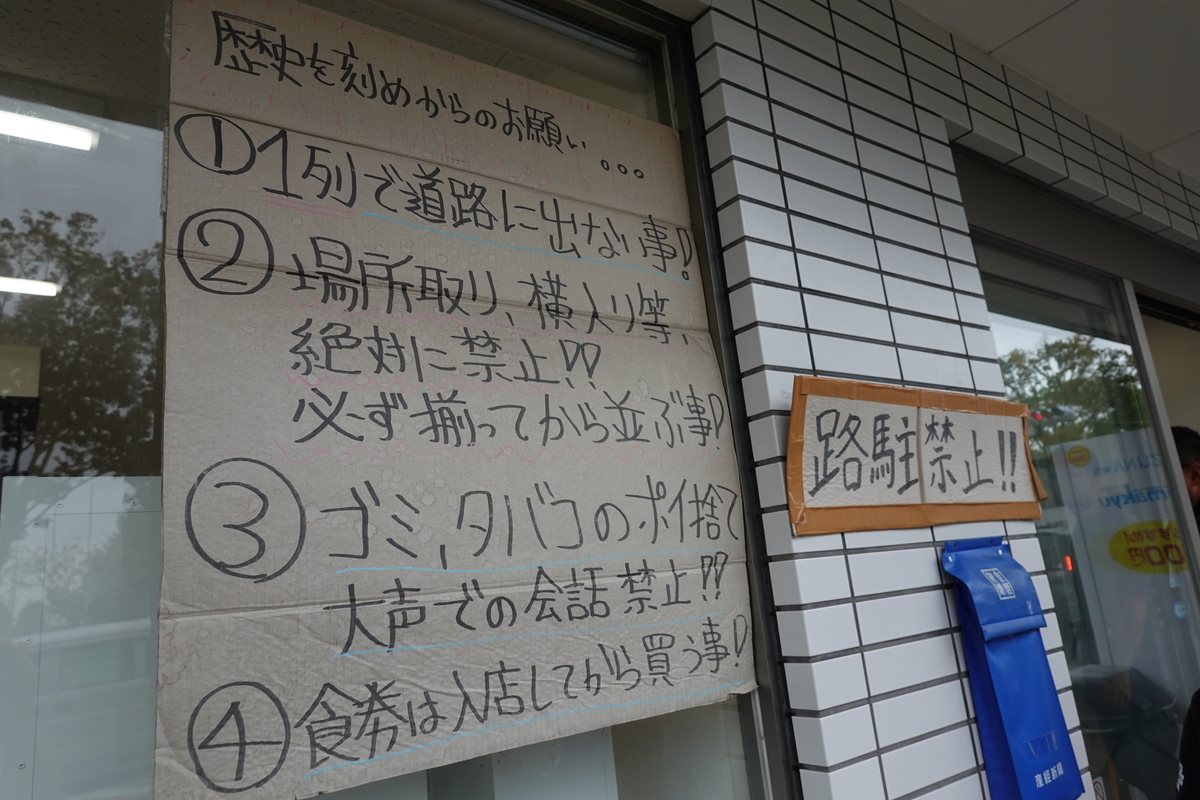 歴史を刻めからのお願い...
①1列で道路に出ない事!
②場所取り、横入り等、
絶対に禁止!!
必ず揃ってから並ぶ事!
③ゴミ,タバコのポイ捨て
大声での会話禁止!!
④食券は入店してから買う事!
路駐禁止!!
産経新聞
makyu